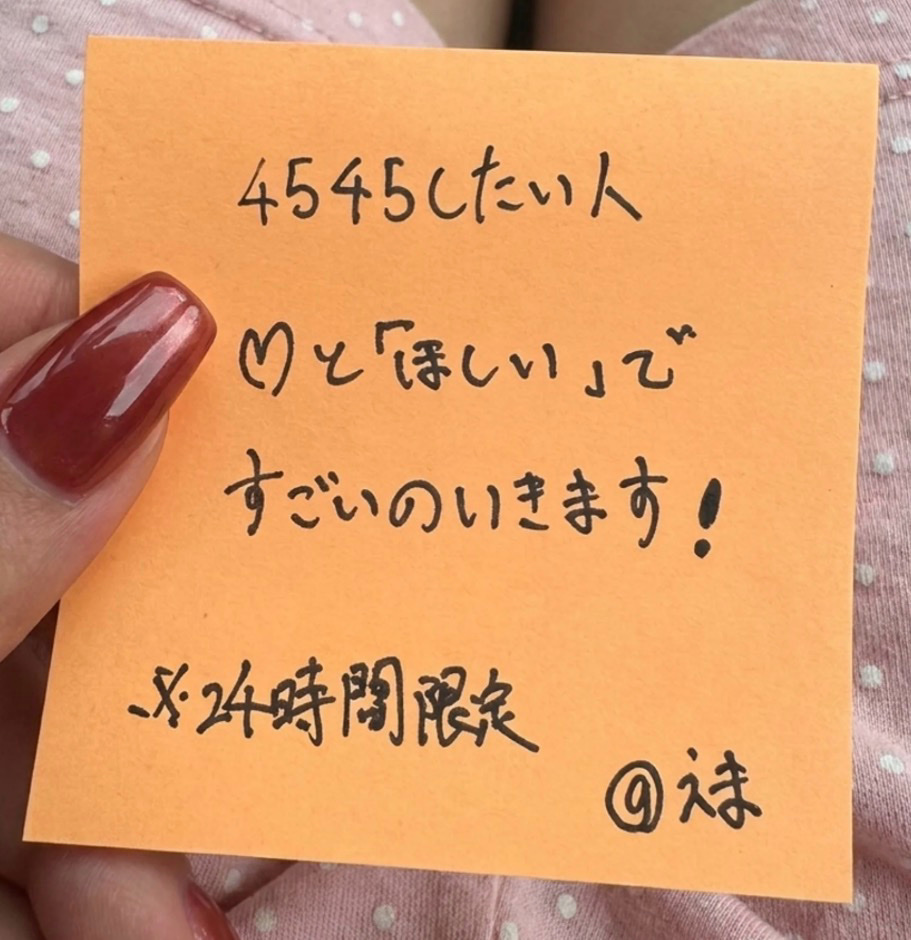 4545したい人
♡と「ほしい」で
すごいのいきます!
※24時間限定
@えま